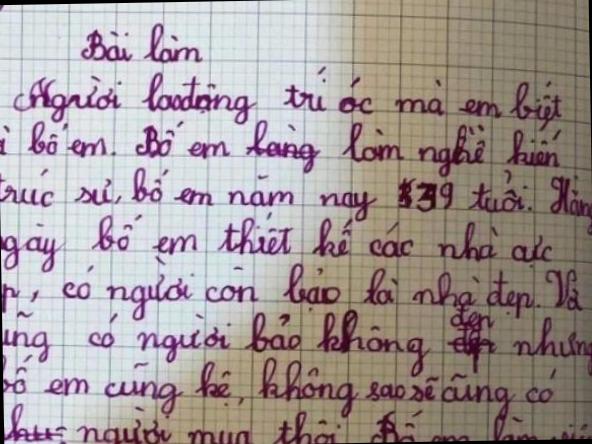 Bài làm
Người laođộng trí óc mà em biết
bố em. Bố em làng làm nghề kiến
trúc sư, bố em năm nay 39 tuổi. Hàng
gày bố em thiết kế các nhà cực
có người còn bảo là nhà đẹp. Và
ũng có người bảo không đẹp nhưng
bố em cũng kệ, không sao sẽ cũng có
người mua thôi. Bố em làm